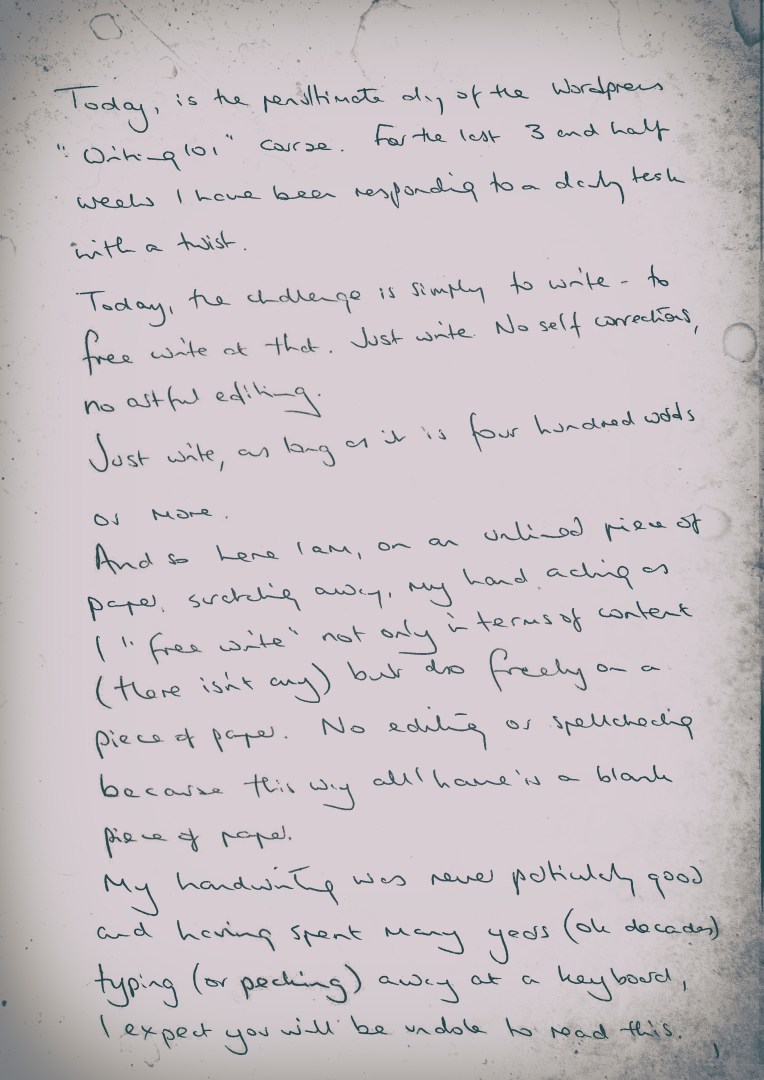 Today, is the penultimate day of the Wordpress
"Writing 101" course. For the last 3 and half
weeks I have been responding to a daily task
with a twist.
Today, the challenge is simply to write - to
free write at that. Just write. No self corrections,
no artful editing.
Just write, as long as it is four hundred words
or more.
And so here I am, on an unlined piece of
paper, scratching away, my hand aching as
I "free write" not only in terms of content
(there isn't any) but also freely on a
piece of paper. No editing or spellchecking
because this way all I have is a blank
piece of paper.
My handwriting was never particularly good
and having spent many years (ok decades)
typing (or pecking) away at a keyboard,
I expect you will be unable to read this.